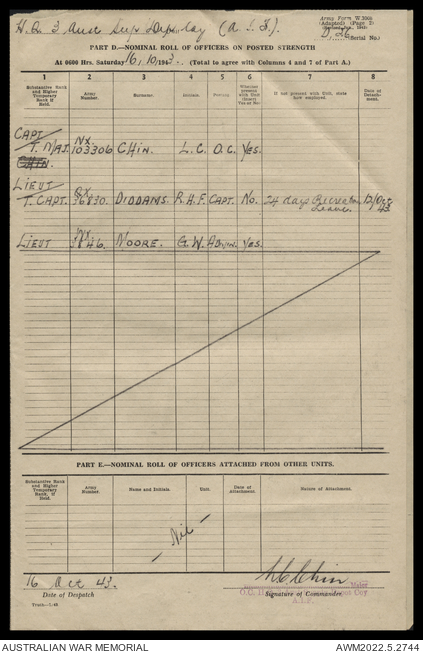 H.Q. 3 Aust Sup Dep. Coy (A.I.F).
Army Form W.3008
(Adapted) (Page 2)
(Serial No.)
PART D.—NOMINAL ROLL OF OFFICERS ON POSTED STRENGTH
At 0600 Hrs. Saturday 16/10/1943. (Total to agree with Columns 4 and 7 of Part A.)
1 2 3 4 5 6 7 8
Substantive Rank and Higher Temporary Rank if Held. Army Number. Surname. Initials. Posting. Whether present with Unit (Insert Yes or No) If not present with Unit, state how employed. Date of Detachment.
CAPT NX
T. MAJ. 103306 CHIN. L.C. O.C. Yes.
CHIN.
LIEUT
T. CAPT. 36830. DIDDAMS. R.H.F. CAPT. No. 24 days Recreation 12/Oct
Leave. 43
LIEUT 46. MOORE. G.W. ADMIN. Yes.
PART E.—NOMINAL ROLL OF OFFICERS ATTACHED FROM OTHER UNITS.
Substantive Rank and Higher Temporary Rank, if Held. Army Number. Name and Initials. Unit. Date of Attachment. Nature of Attachment.
— Nil —
16 Oct 43. Major
Date of Despatch Signature of Commander.
A.I.F.
AUSTRALIAN WAR MEMORIAL AWM2022.5.2744